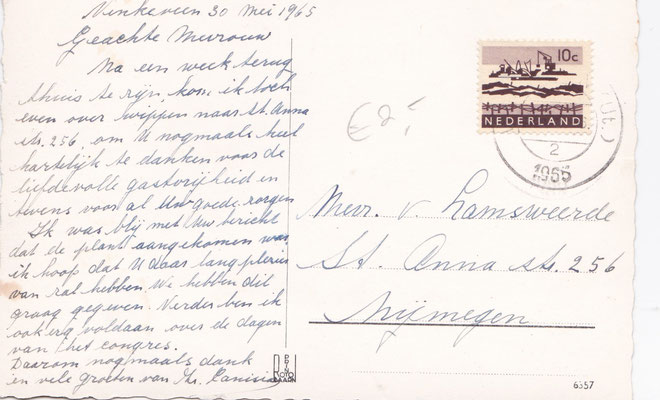 Vinkeveen 30 mei 1965
Geachte Mevrouw
Na een week terug
thuis te zijn, kom ik toch
even over wippen naar St. Anna
str. 256. om U nogmaals heel
hartelijk te danken voor de
liefdevolle gastvrijheid en
tevens voor al uw goede zorgen
Ik was blij met Uw bericht
dat de plant aangekomen was,
ik hoop dat U daar lang plezier
van zal hebben. We hebben dit
graag gegeven. Verder ben ik
ook erg voldaan over de dagen
van het congres.
Daarom nogmaals dank
en vele groeten van Zr. Canisia
€ 2,-
10c
NEDERLAND
2
1965
Mevr. v. Lamsweerde
St. Anna str. 256
Nijmegen
6357